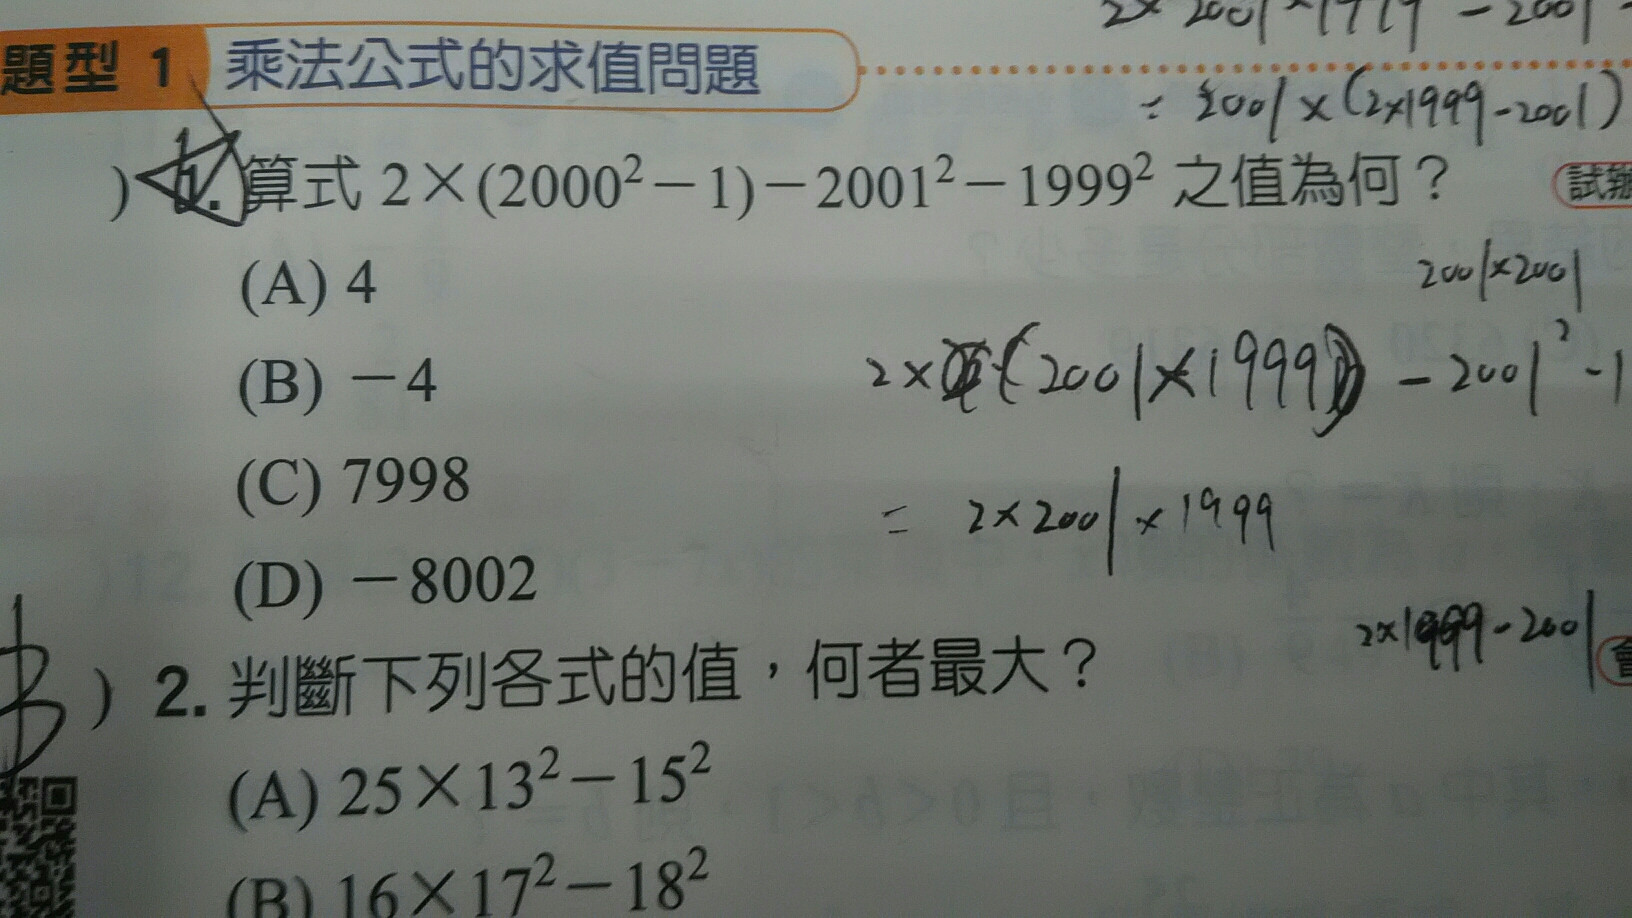 2×2001×1999-2001
題型 1 乘法公式的求值問題
= 2001×(2×1999-2001)
) 1. 算式 2×(2000²-1)-2001²-1999² 之值為何？ 試辦
(A) 4
2001×2001
(B) -4
2×(2001×1999)-2001²-1
(C) 7998
= 2×2001×1999
(D) -8002
2×1999-2001
B ) 2. 判斷下列各式的值，何者最大？ 會
(A) 25×13²-15²
(B) 16×17²-18²